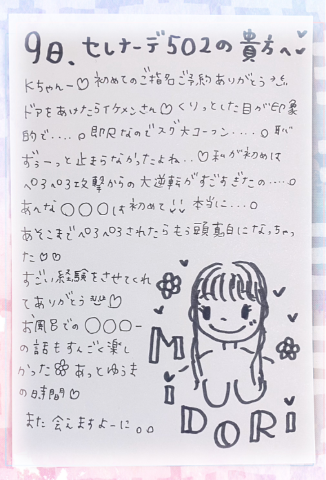 9日、セレナーデ502の貴方へ♥
Kちゃん〜♡初めてのご指名ご予約ありがとう
ドアをあけたらイケメンさん♡くりっとした目が印象
的で....。即尺なのでスグ大コーフン....。恥
ずぅーっと止まらなかったよね..♡私が初めは
ペロペロ攻撃からの大逆転がすごすぎたの.....。
あんな〇〇〇は初めて!!本当に...。
あそこまでペロペロされたらもう頭真白になっちゃっ
た♡♡
すごい経験をさせてくれ
てありがとう♡
お風呂での〇〇〇ー
の話もすんごく楽し
かった あっとゆうま
の時間♡
また会えますよーに。。
MiDORi